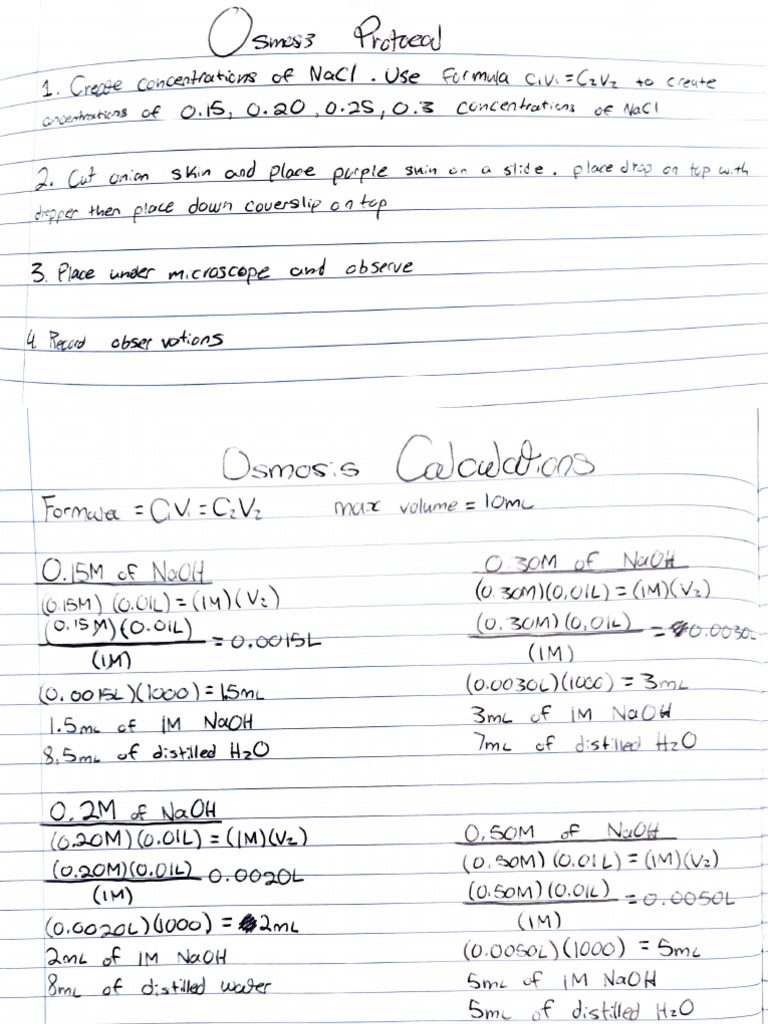 Osmos3 Protocol
1. Create concentrations of NaCl. Use formula C₁V₁=C₂V₂ to create
concentrations of 0.15, 0.20, 0.25, 0.3 concentrations of NaCl
2. Cut onion skin and place purple skin on a slide. place drop on top with
dropper then place down coverslip on top
3. Place under microscope and observe
4. Record observations
Osmosis Calculations
Formula = C₁V₁=C₂V₂ max volume = 10mL
0.15M of NaOH
(0.15M) (0.01L) = (1M)(V₂)
(0.15M)(0.01L) = 0.0015L
(1M)
(0.0015L)(1000) = 1.5mL
1.5mL of 1M NaOH
8.5mL of distilled H₂O
0.30M of NaOH
(0.30M)(0.01L) = (1M)(V₂)
(0.30M)(0.01L) = 0.0030L
(1M)
(0.0030L)(1000) = 3mL
3mL of 1M NaOH
7mL of distilled H₂O
0.2M of NaOH
(0.20M)(0.01L) = (1M)(V₂)
(0.20M)(0.01L) 0.0020L
(1M)
(0.0020L)(1000) = 2mL
2mL of 1M NaOH
8mL of distilled water
0.50M of NaOH
(0.50M) (0.01L) = (1M)(V₂)
(0.50M)(0.01L) = 0.0050L
(1M)
(0.0050L)(1000) = 5mL
5mL of 1M NaOH
5mL of distilled H₂O